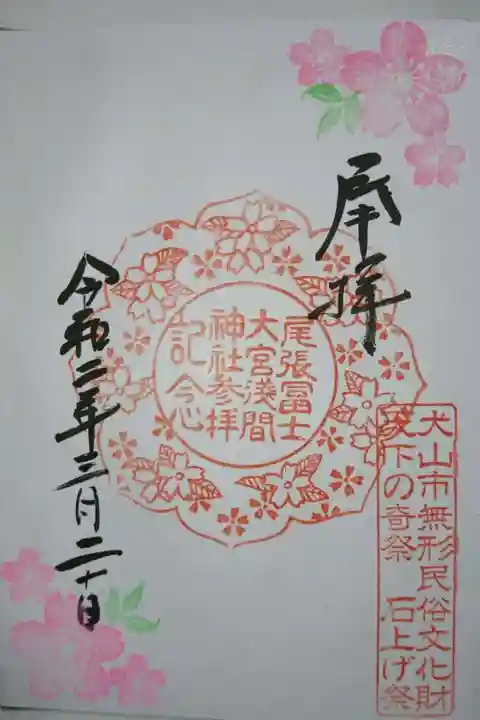 奉拝
尾張冨士
大宮浅間
神社参拝
記念
令和二年三月二十日
犬山市無形民俗文化財
天下の奇祭 石上げ祭